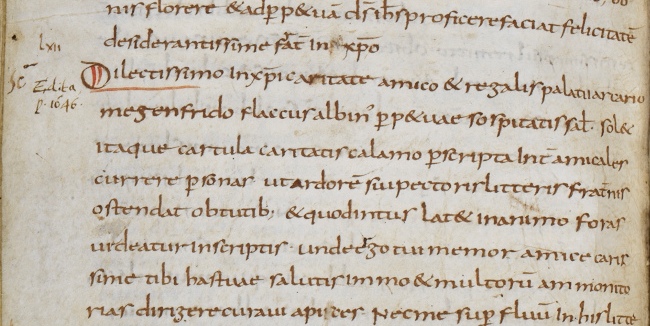 nis florere & adp̄p&uā d̄s ih̄s proficere faciat felicitatē
desiderantissime frat̄ in xp̄o
lxii
Dilectissimo in xp̄i caritate amico & regalis palatii artario
megenfrido flaccus albin' p̄p&uae sospitatis sat. sol&
itaque cartula caritatis calamo p̄scripta int̄ amicales
currere p̄sonas ut ardorē sui pectoris litteris frat̄nis
ostendat obtutib; & quod intus lat& in animo foras
uideatur in scriptis. unde ergo tui memor amice caris
sime tibi ac tuae salutis immo & multorū ammonito
rias dirigere curaui apices nec me sup̄ fluū in his litte
Edita
p. 1646.